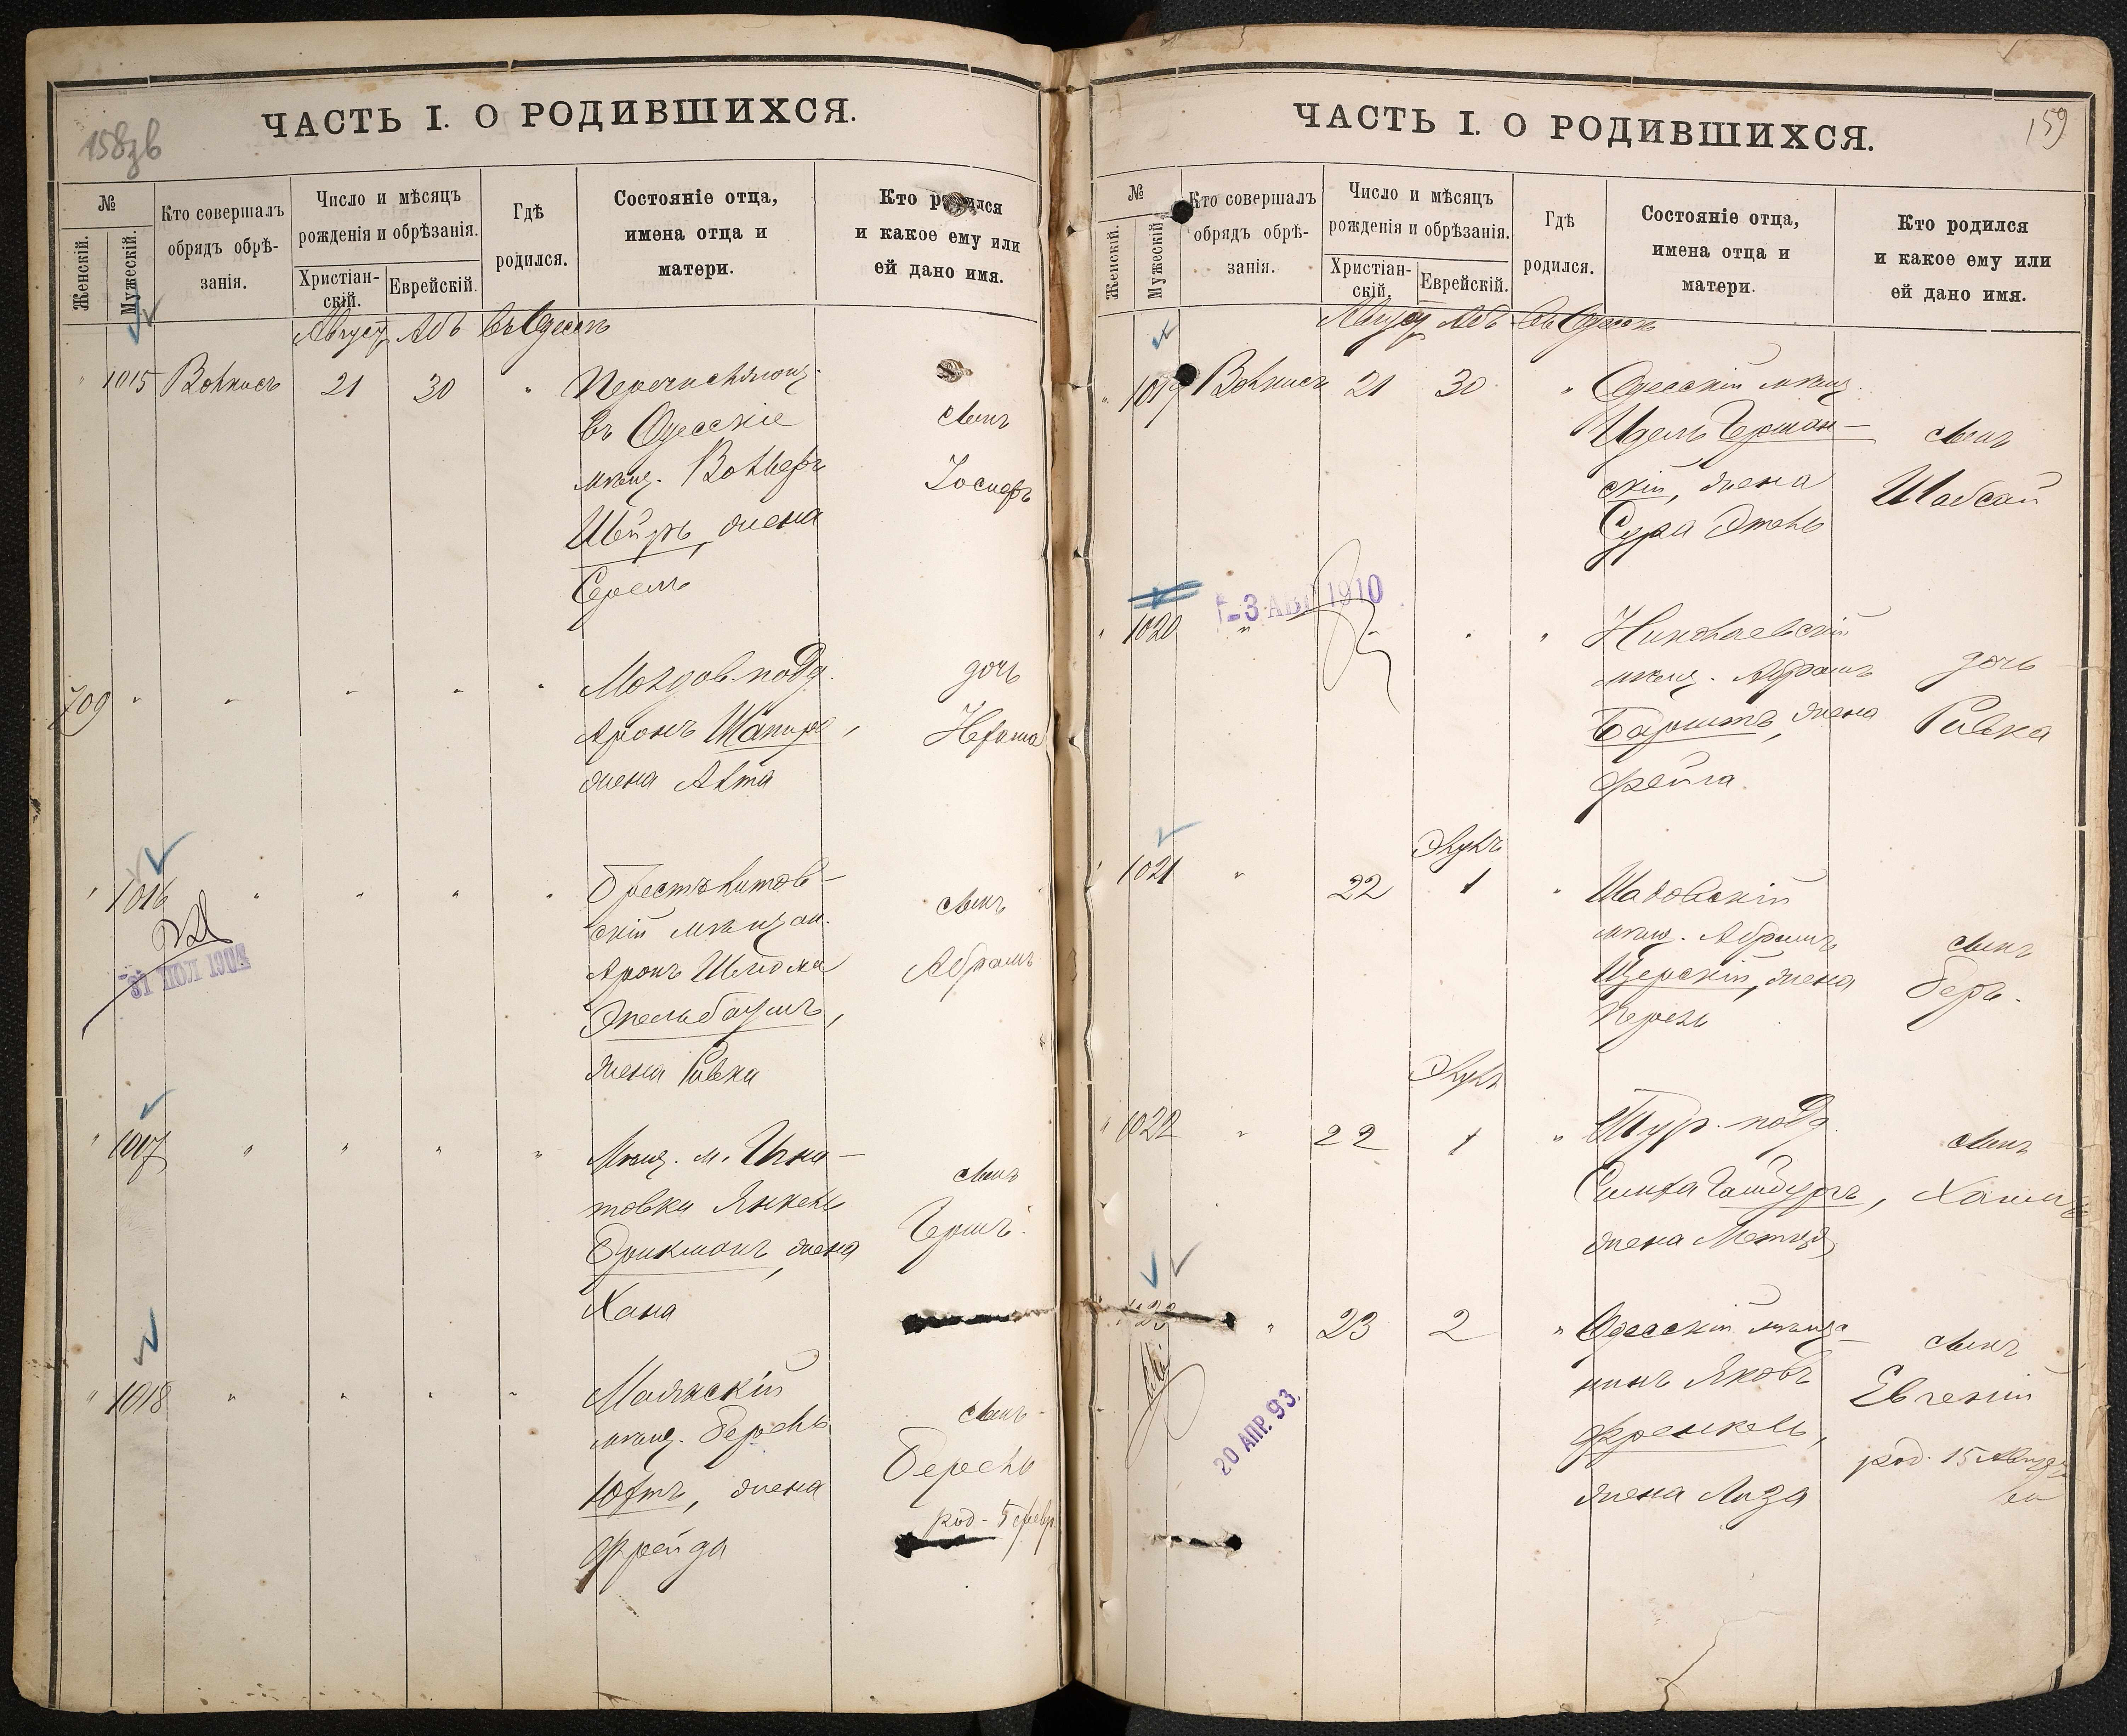 158зв
ЧАСТЬ I. О РОДИВШИХСЯ.
№
Женскій.
Мужескій.
Кто совершалъ
обрядъ обрѣ-
занія.
Число и мѣсяцъ
рожденія и обрѣзанія.
Христіан-
скій.
Еврейскій.
Гдѣ
родился.
Состояніе отца,
имена отца и
матери.
Кто родился
и какое ему или
ей дано имя.
Августъ Абъ въ Одессѣ
" 1015 Волкисъ 21 30 "
въ Одесскіе
мѣщ. Вольфъ
жена
сынъ
Іосифъ
709 " " " " "
Молдов. подд.
Аронъ Шапиро,
жена Алта
дочь
Нехама
" 1016 " " " "
Брестълитов-
скій мѣщан.
Аронъ Шлиома
Эпельбаумъ,
жена Ривка
сынъ
Абрамъ
" 1017 " " " "
Мѣщ. м.
товки Янкель
Брикманъ, жена
Хана
сынъ
Гершъ.
" 1018 " " " "
Маякскій
мѣщ. Берель
Юфтъ, жена
Фрейда
сынъ
Берель
род. 5 февр.
159
ЧАСТЬ I. О РОДИВШИХСЯ.
№
Женскій.
Мужескій.
Кто совершалъ
обрядъ обрѣ-
занія.
Число и мѣсяцъ
рожденія и обрѣзанія.
Христіан-
скій.
Еврейскій.
Гдѣ
родился.
Состояніе отца,
имена отца и
матери.
Кто родился
и какое ему или
ей дано имя.
Августъ Абъ въ Одессѣ
" 1019 Волкисъ 21 30 "
Одесскій мѣщ.
Идель Герман-
скій, жена
Сура Этель
сынъ
Шабсай
-3 АВГ 1910
" 1020 " " "
Николаевскій
мѣщ. Абрамъ
жена
Фейга.
дочь
Ривка
Элулъ
" 1021 " 22 1 "
Шадовскій
мѣщ. Абрамъ
жена
Перель
сынъ
Беръ.
Элулъ
" 1022 " 22 1 "
Тур. подд.
Симха
жена
сынъ
Хаимъ
1023 " 23 2 "
Одесскій мѣща-
нинъ Яковъ
Френкель,
жена Лиза
сынъ
Евгеній
род. 15
20 АПР. 93.